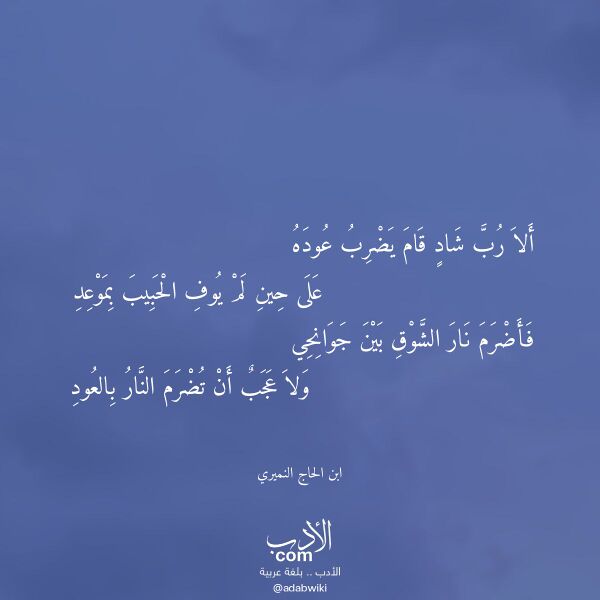 أَلاَ رُبَّ شَادٍ قَامَ يَضْرِبُ عُودَهُ
عَلَى حِينِ لَمْ يُوفِ الْحَبِيبَ بِمَوْعِدِ
فَأَضْرَمَ نَارَ الشَّوْقِ بَيْنَ جَوَانِحِي
وَلاَ عَجَبٌ أَنْ تُضْرَمَ النَّارُ بِالعُودِ
ابن الحاج النميري
الأدب
com
الأدب .. بلغة عربية
@adabwiki